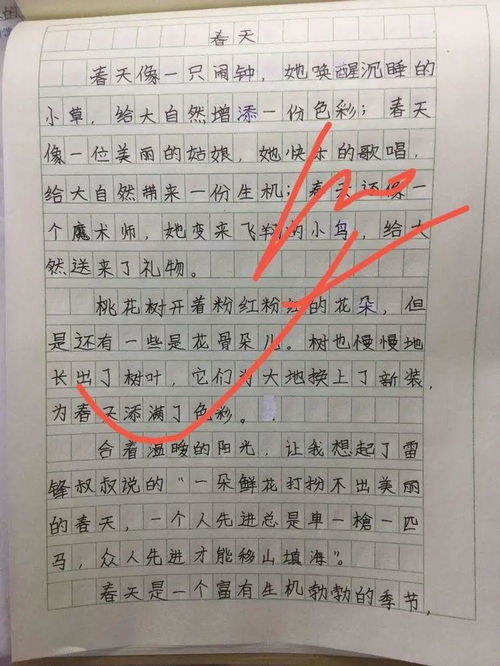 春天
春天像一只闹钟，她唤醒沉睡的
小草，给大自然增添一份色彩；春天
像一位美丽的姑娘，她快乐的歌唱，
给大自然带来一份生机；春天还像一
个魔术师，她变来飞翔的小鸟，给大
然送来了礼物。
桃花树开着粉红粉红的花朵，但
是还有一些是花骨朵儿。树也慢慢地
长出了树叶，它们为大地换上了新装，
为春天添满了色彩。
合着温暖的阳光，让我想起了雷
锋叔叔说的“一朵鲜花打扮不出美丽
的春天，一个人先进总是单一槍一匹
马，众人先进才能移山填海”。
春天是一个富有生机勃勃的季节，